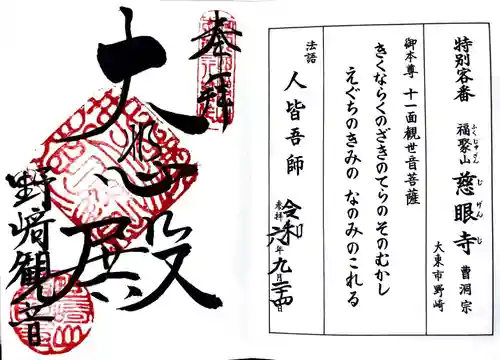 特別客番
福聚山 慈眼寺 曹洞宗
ふくじゅざん じげんじ
大東市野崎
御本尊 十一面觀世音菩薩
きくならくのざきのてらのそのむかし
えぐちのきみの なのみのこれる
法語
人皆吾師
参拝
令和六年九月二十四日
奉拝
大悲殿
野崎観音